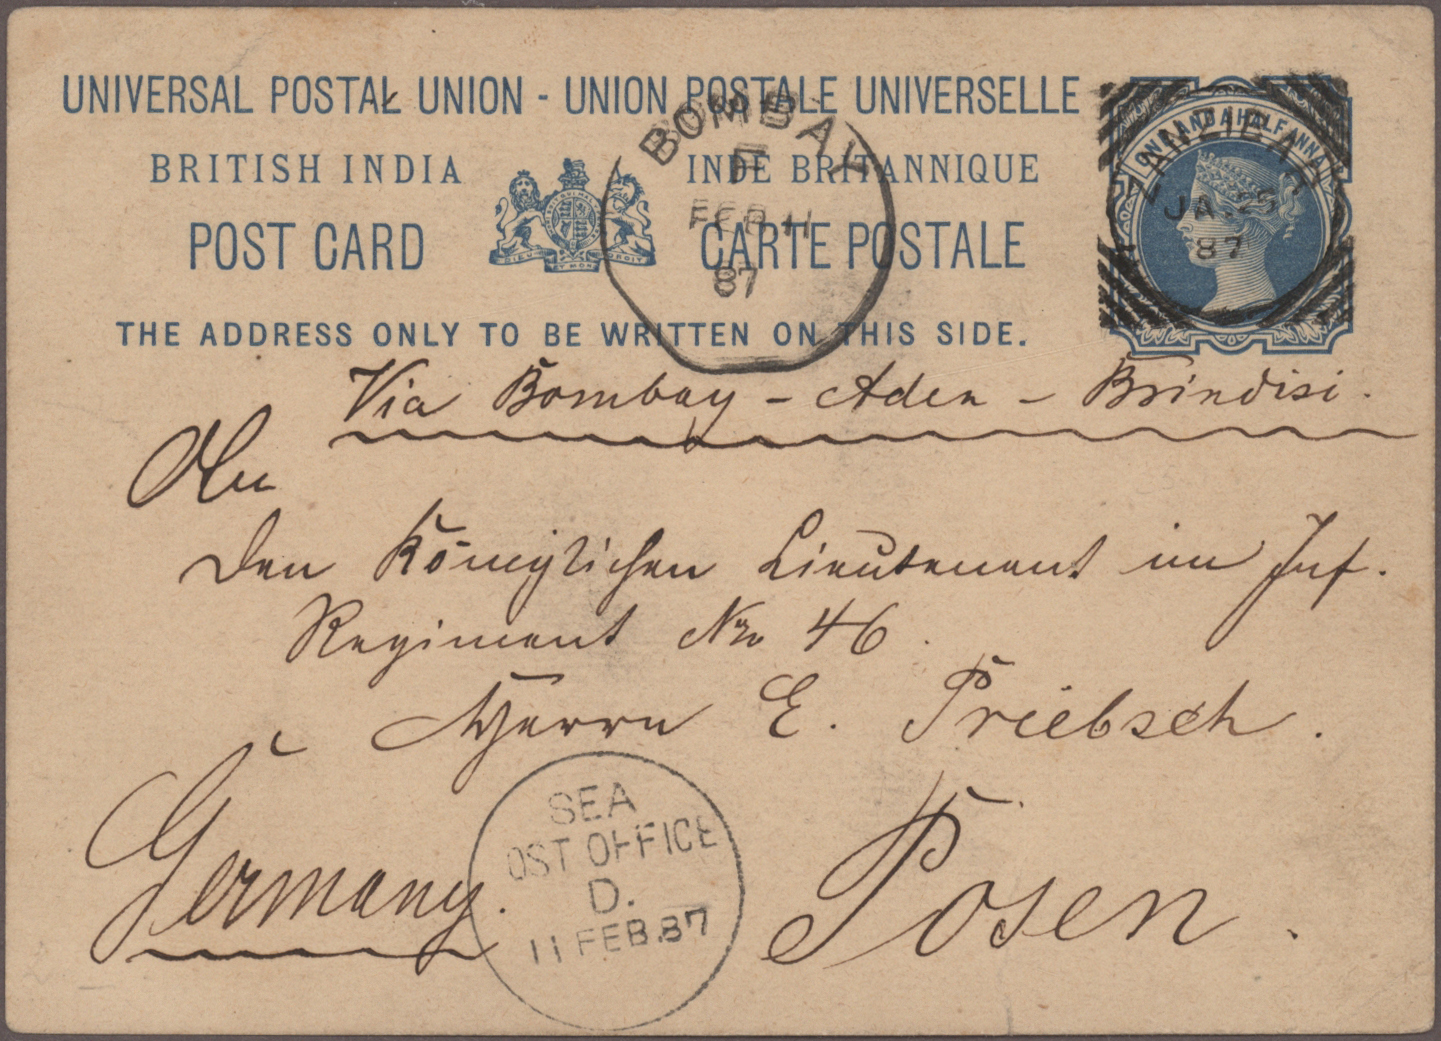 UNIVERSAL POSTAL UNION - UNION POSTALE UNIVERSELLE
BRITISH INDIA INDE BRITANNIQUE
POST CARD CARTE POSTALE
THE ADDRESS ONLY TO BE WRITTEN ON THIS SIDE.
DIEU ET MON DROIT
ONE AND A HALF ANNA
ZANZIBAR
JA. 25
87
BOMBAY
F
FEB 11
87
Via Bombay - Aden - Brindisi.
An
den Königlichen Lieutenant im Inf.
Regiment Nro 46.
Herrn E. Priebsch.
Germany. Posen.
SEA
OST OFFICE
D.
11 FEB. 87